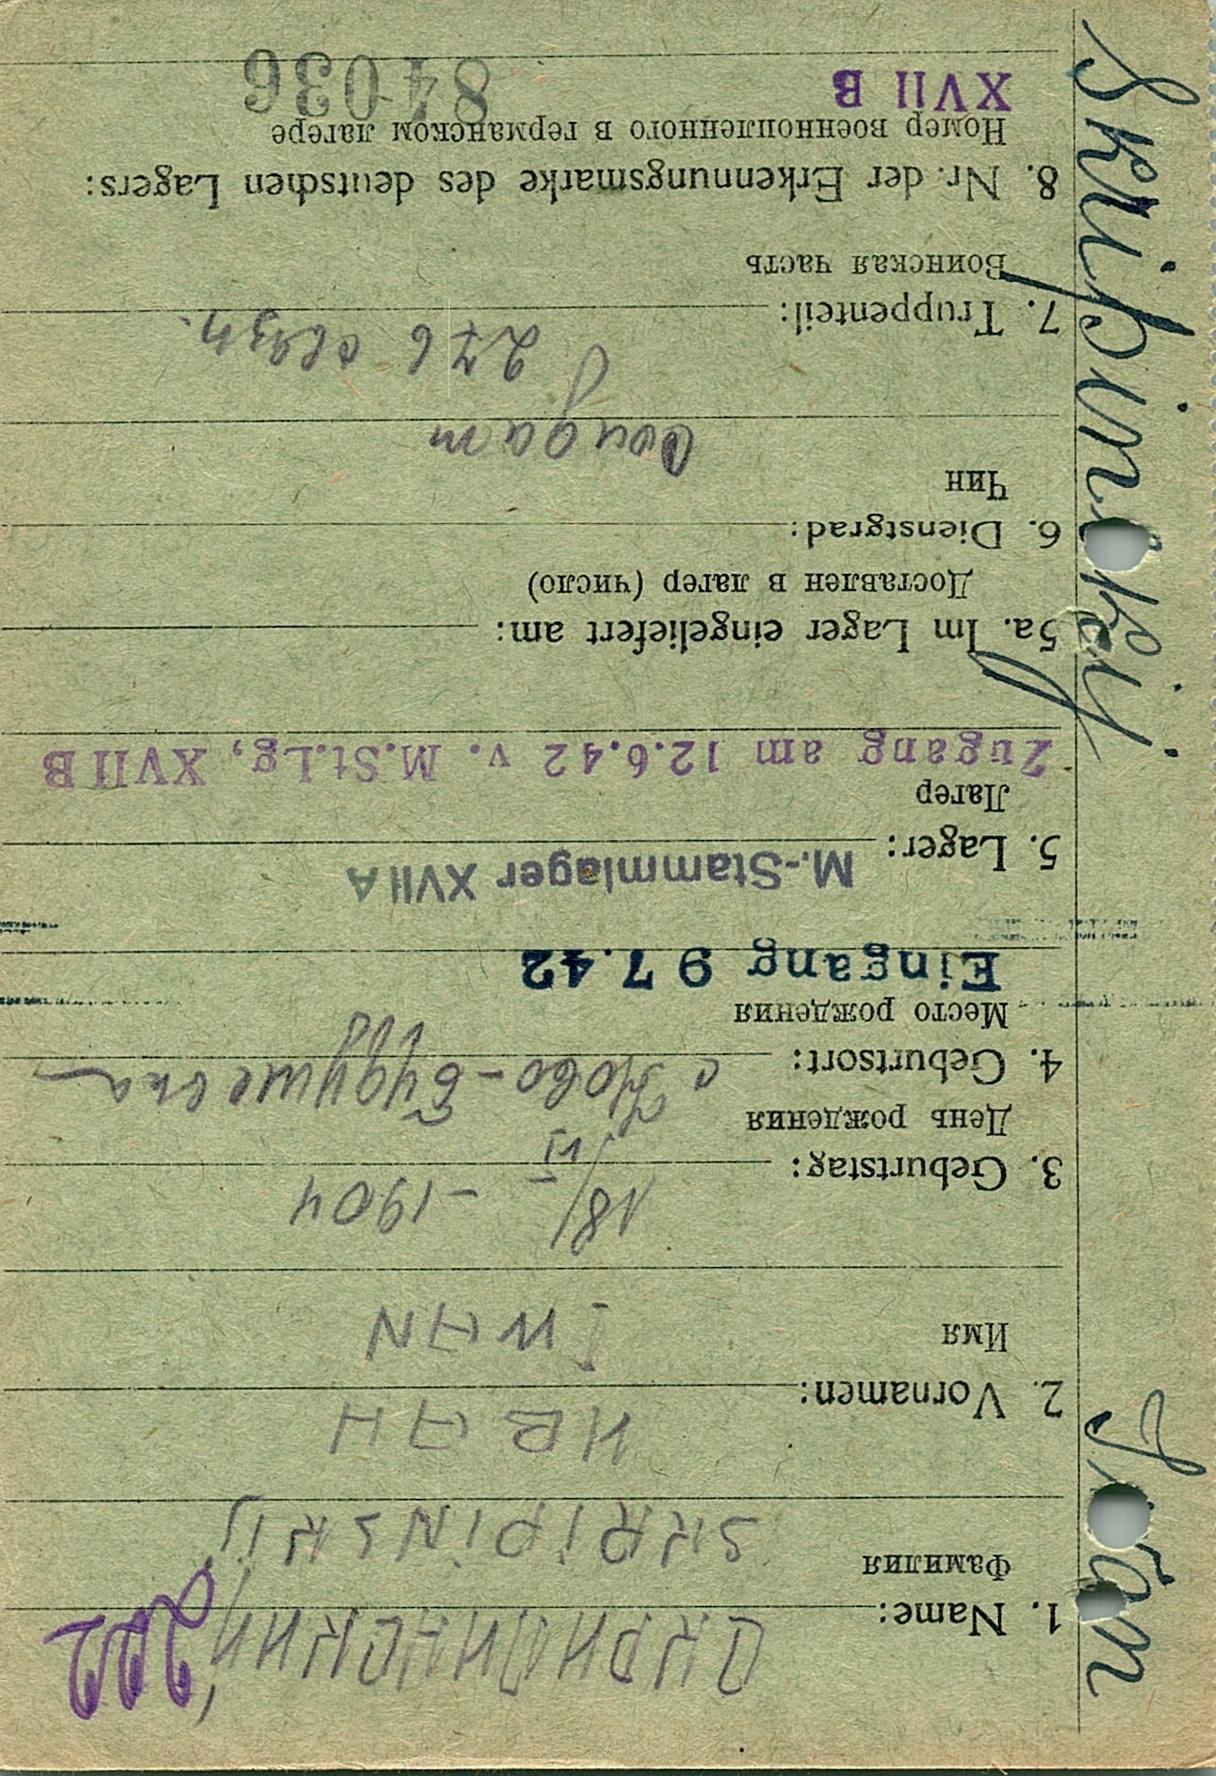 Skripinskij Iwan
1. Name:
СКРИПИНСКИЙ,
202
Фамилия
SKRIPINSKIJ
ИВАН
2. Vornamen:
Имя
IWAN
18/VI -1904
3. Geburtstag:
День рождения
с Ново-
4. Geburtsort:
Место рождения
Eingang 9 7.42
M.-Stammlager XVII A
5. Lager:
Лагер
Zugang am 12.6.42 v. M.St.Lg, XVII B
5a. Im Lager eingeliefert am:
Доставлен в лагер (число)
6. Dienstgrad:
Чин
Солдат
276
7. Truppenteil:
Воинская часть
8. Nr. der Erkennungsmarke des deutschen Lagers:
Номер военнопленного в германском лагере
XVII B 84036